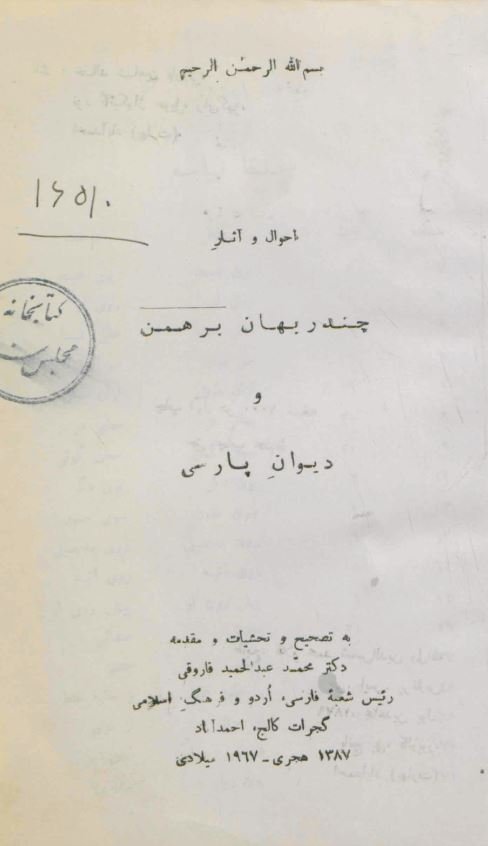 بسم الله الرحمن الرحیم
۱۶۵۱۰
احوال و آثارِ
چندر بهان برهمن
کتابخانه
مجلس
و
دیوانِ پارسی
به تصحیح و تحشیات و مقدمه
دکتر محمّد عبدالحمید فاروقی
رئیس شعبهٔ فارسی، اُردو و فرهنگِ اسلامی
گجرات کالج، احمدآباد
۱۳۸۷ هجری - ۱۹۶۷ میلادی